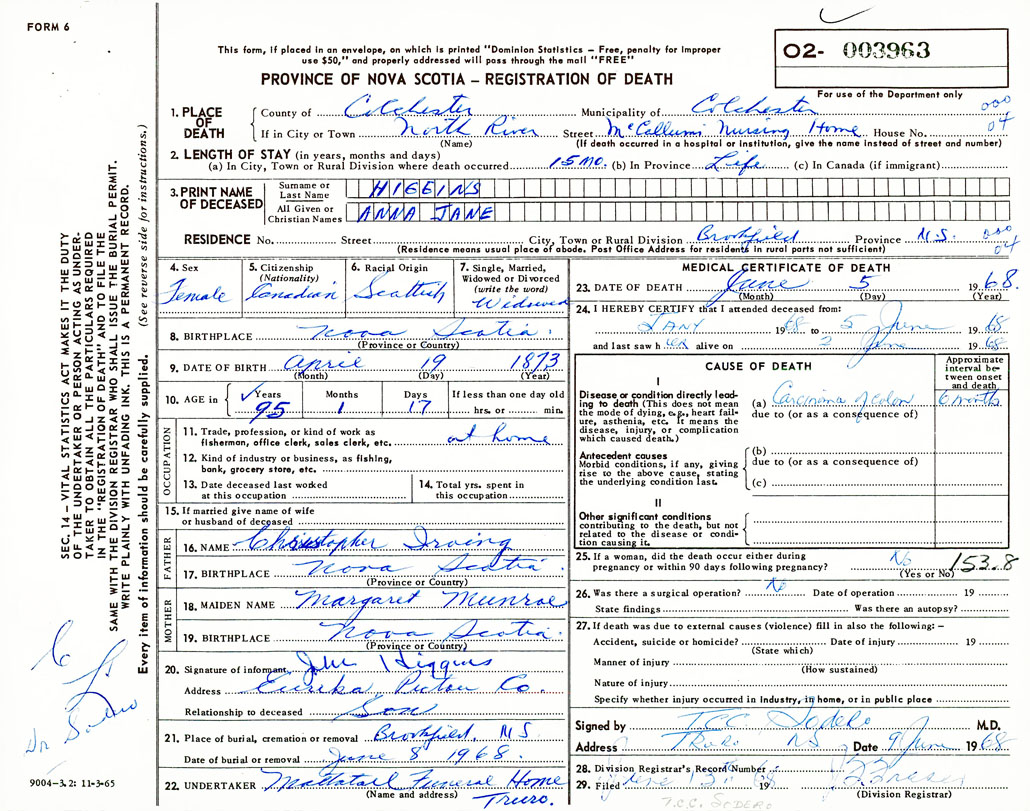 FORM 6
This form, if placed in an envelope, on which is printed "Dominion Statistics – Free, penalty for improper
use $50," and properly addressed will pass through the mail "FREE"
02- 003963
PROVINCE OF NOVA SCOTIA – REGISTRATION OF DEATH
For use of the Department only
1. PLACE OF DEATH
County of Colchester Municipality of Colchester 000
If in City or Town North River Street McCallums Nursing Home House No. 04
(Name) (If death occurred in a hospital or institution, give the name instead of street and number)
2. LENGTH OF STAY (in years, months and days)
(a) In City, Town or Rural Division where death occurred 15 mo. (b) In Province Life (c) In Canada (if immigrant)
3. PRINT NAME OF DECEASED
Surname or Last Name HIGGINS
All Given or Christian Names ANNA JANE
RESIDENCE No. Street City, Town or Rural Division Brookfield Province N.S. 000 04
(Residence means usual place of abode. Post Office Address for residents in rural parts not sufficient)
4. Sex Female
5. Citizenship (Nationality) Canadian
6. Racial Origin Scottish
7. Single, Married, Widowed or Divorced (write the word) Widowed
8. BIRTHPLACE Nova Scotia
(Province or Country)
9. DATE OF BIRTH April 19 1873
(Month) (Day) (Year)
10. AGE in Years 95 Months 1 Days 17 If less than one day old hrs. or min.
OCCUPATION
11. Trade, profession, or kind of work as
fisherman, office clerk, sales clerk, etc. at home
12. Kind of industry or business, as fishing,
bank, grocery store, etc.
13. Date deceased last worked
at this occupation
14. Total yrs. spent in
this occupation
15. If married give name of wife
or husband of deceased
FATHER
16. NAME Christopher Irving
17. BIRTHPLACE Nova Scotia
(Province or Country)
MOTHER
18. MAIDEN NAME Margaret Munroe
19. BIRTHPLACE Nova Scotia
(Province or Country)
20. Signature of informant Higgins
Address Eureka, Pictou Co.
Relationship to deceased Son
21. Place of burial, cremation or removal Brookfield, N S
Date of burial or removal June 8 1968
22. UNDERTAKER Mattatall Funeral Home
(Name and address) Truro.
MEDICAL CERTIFICATE OF DEATH
23. DATE OF DEATH June 5 1968.
(Month) (Day) (Year)
24. I HEREBY CERTIFY that I attended deceased from:
JANY 1968 to 5 June 1968
and last saw her alive on 2 June 1968
CAUSE OF DEATH
Approximate interval between onset and death
I
Disease or condition directly leading to death (This does not mean the mode of dying, e.g., heart failure, asthenia, etc. It means the disease, injury, or complication which caused death.)
(a) Carcinoma of colon 6 months
due to (or as a consequence of)
Antecedent causes
Morbid conditions, if any, giving rise to the above cause, stating the underlying condition last.
(b)
due to (or as a consequence of)
(c)
II
Other significant conditions contributing to the death, but not related to the disease or condition causing it.
25. If a woman, did the death occur either during
pregnancy or within 90 days following pregnancy? No 153.8
(Yes or No)
26. Was there a surgical operation? No Date of operation 19
State findings Was there an autopsy?
27. If death was due to external causes (violence) fill in also the following: –
Accident, suicide or homicide? Date of injury 19
(State which)
Manner of injury
(How sustained)
Nature of injury
Specify whether injury occurred in industry, in home, or in public place
Signed by T.C.C. Sodero M.D.
Address Truro NS Date 9 June 1968
28. Division Registrar's Record Number
29. Filed June 13 1968
(Division Registrar)
T.C.C. SODERO
SEC. 14 – VITAL STATISTICS ACT MAKES IT THE DUTY
OF THE UNDERTAKER OR PERSON ACTING AS UNDER-
TAKER TO OBTAIN ALL THE PARTICULARS REQUIRED
IN THE "REGISTRATION OF DEATH" AND TO FILE THE
SAME WITH THE DIVISION REGISTRAR WHO SHALL ISSUE THE BURIAL PERMIT.
WRITE PLAINLY WITH UNFADING INK. THIS IS A PERMANENT RECORD.
Every item of information should be carefully supplied. (See reverse side for instructions.)
Dr Sodero
9004-3.2: 11-3-65